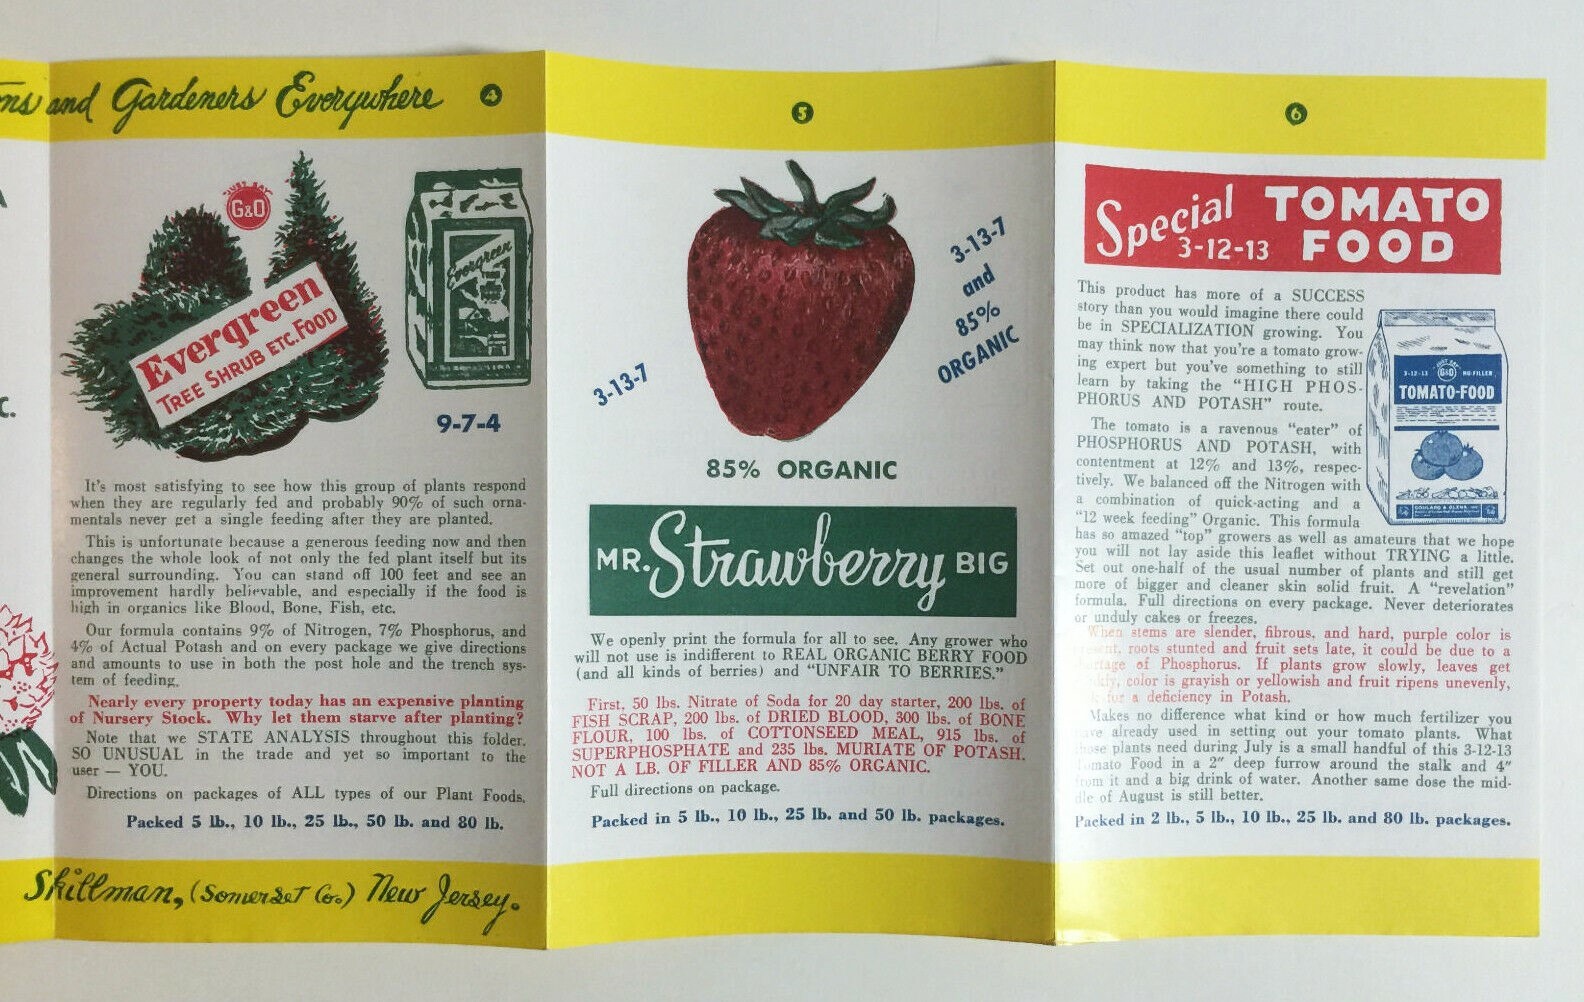 ns and Gardeners Everywhere
4
"JUST SAY"
G&O
Evergreen
TREE SHRUB ETC. FOOD
Evergreen
9-7-4
It's most satisfying to see how this group of plants respond
when they are regularly fed and probably 90% of such orna-
mentals never get a single feeding after they are planted.
This is unfortunate because a generous feeding now and then
changes the whole look of not only the fed plant itself but its
general surrounding. You can stand off 100 feet and see an
improvement hardly believable, and especially if the food is
high in organics like Blood, Bone, Fish, etc.
Our formula contains 9% of Nitrogen, 7% Phosphorus, and
4% of Actual Potash and on every package we give directions
and amounts to use in both the post hole and the trench sys-
tem of feeding.
Nearly every property today has an expensive planting
of Nursery Stock. Why let them starve after planting?
Note that we STATE ANALYSIS throughout this folder.
SO UNUSUAL in the trade and yet so important to the
user — YOU.
Directions on packages of ALL types of our Plant Foods.
Packed 5 lb., 10 lb., 25 lb., 50 lb. and 80 lb.
Skillman, (Somerset Co.) New Jersey.
C.
5
3-13-7
3-13-7
and
85%
ORGANIC
85% ORGANIC
MR. Strawberry BIG
We openly print the formula for all to see. Any grower who
will not use is indifferent to REAL ORGANIC BERRY FOOD
(and all kinds of berries) and "UNFAIR TO BERRIES."
First, 50 lbs. Nitrate of Soda for 20 day starter, 200 lbs. of
FISH SCRAP, 200 lbs. of DRIED BLOOD, 300 lbs. of BONE
FLOUR, 100 lbs. of COTTONSEED MEAL, 915 lbs. of
SUPERPHOSPHATE and 235 lbs. MURIATE OF POTASH.
NOT A LB. OF FILLER AND 85% ORGANIC.
Full directions on package.
Packed in 5 lb., 10 lb., 25 lb. and 50 lb. packages.
6
Special TOMATO
3-12-13 FOOD
This product has more of a SUCCESS
story than you would imagine there could
be in SPECIALIZATION growing. You
may think now that you're a tomato grow-
ing expert but you've something to still
learn by taking the "HIGH PHOS-
PHORUS AND POTASH" route.
The tomato is a ravenous "eater" of
PHOSPHORUS AND POTASH, with
contentment at 12% and 13%, respec-
tively. We balanced off the Nitrogen with
a combination of quick-acting and a
"12 week feeding" Organic. This formula
has so amazed "top" growers as well as amateurs that we hope
you will not lay aside this leaflet without TRYING a little.
Set out one-half of the usual number of plants and still get
more of bigger and cleaner skin solid fruit. A "revelation"
formula. Full directions on every package. Never deteriorates
or unduly cakes or freezes.
When stems are slender, fibrous, and hard, purple color is
roots stunted and fruit sets late, it could be due to a
of Phosphorus. If plants grow slowly, leaves get
color is grayish or yellowish and fruit ripens unevenly,
for a deficiency in Potash.
Makes no difference what kind or how much fertilizer you
already used in setting out your tomato plants. What
plants need during July is a small handful of this 3-12-13
Tomato Food in a 2" deep furrow around the stalk and 4"
from it and a big drink of water. Another same dose the mid-
dle of August is still better.
Packed in 2 lb., 5 lb., 10 lb., 25 lb. and 80 lb. packages.
3-12-13 JUST SAY G&O NO-FILLER
TOMATO-FOOD
GOULARD & OLENA